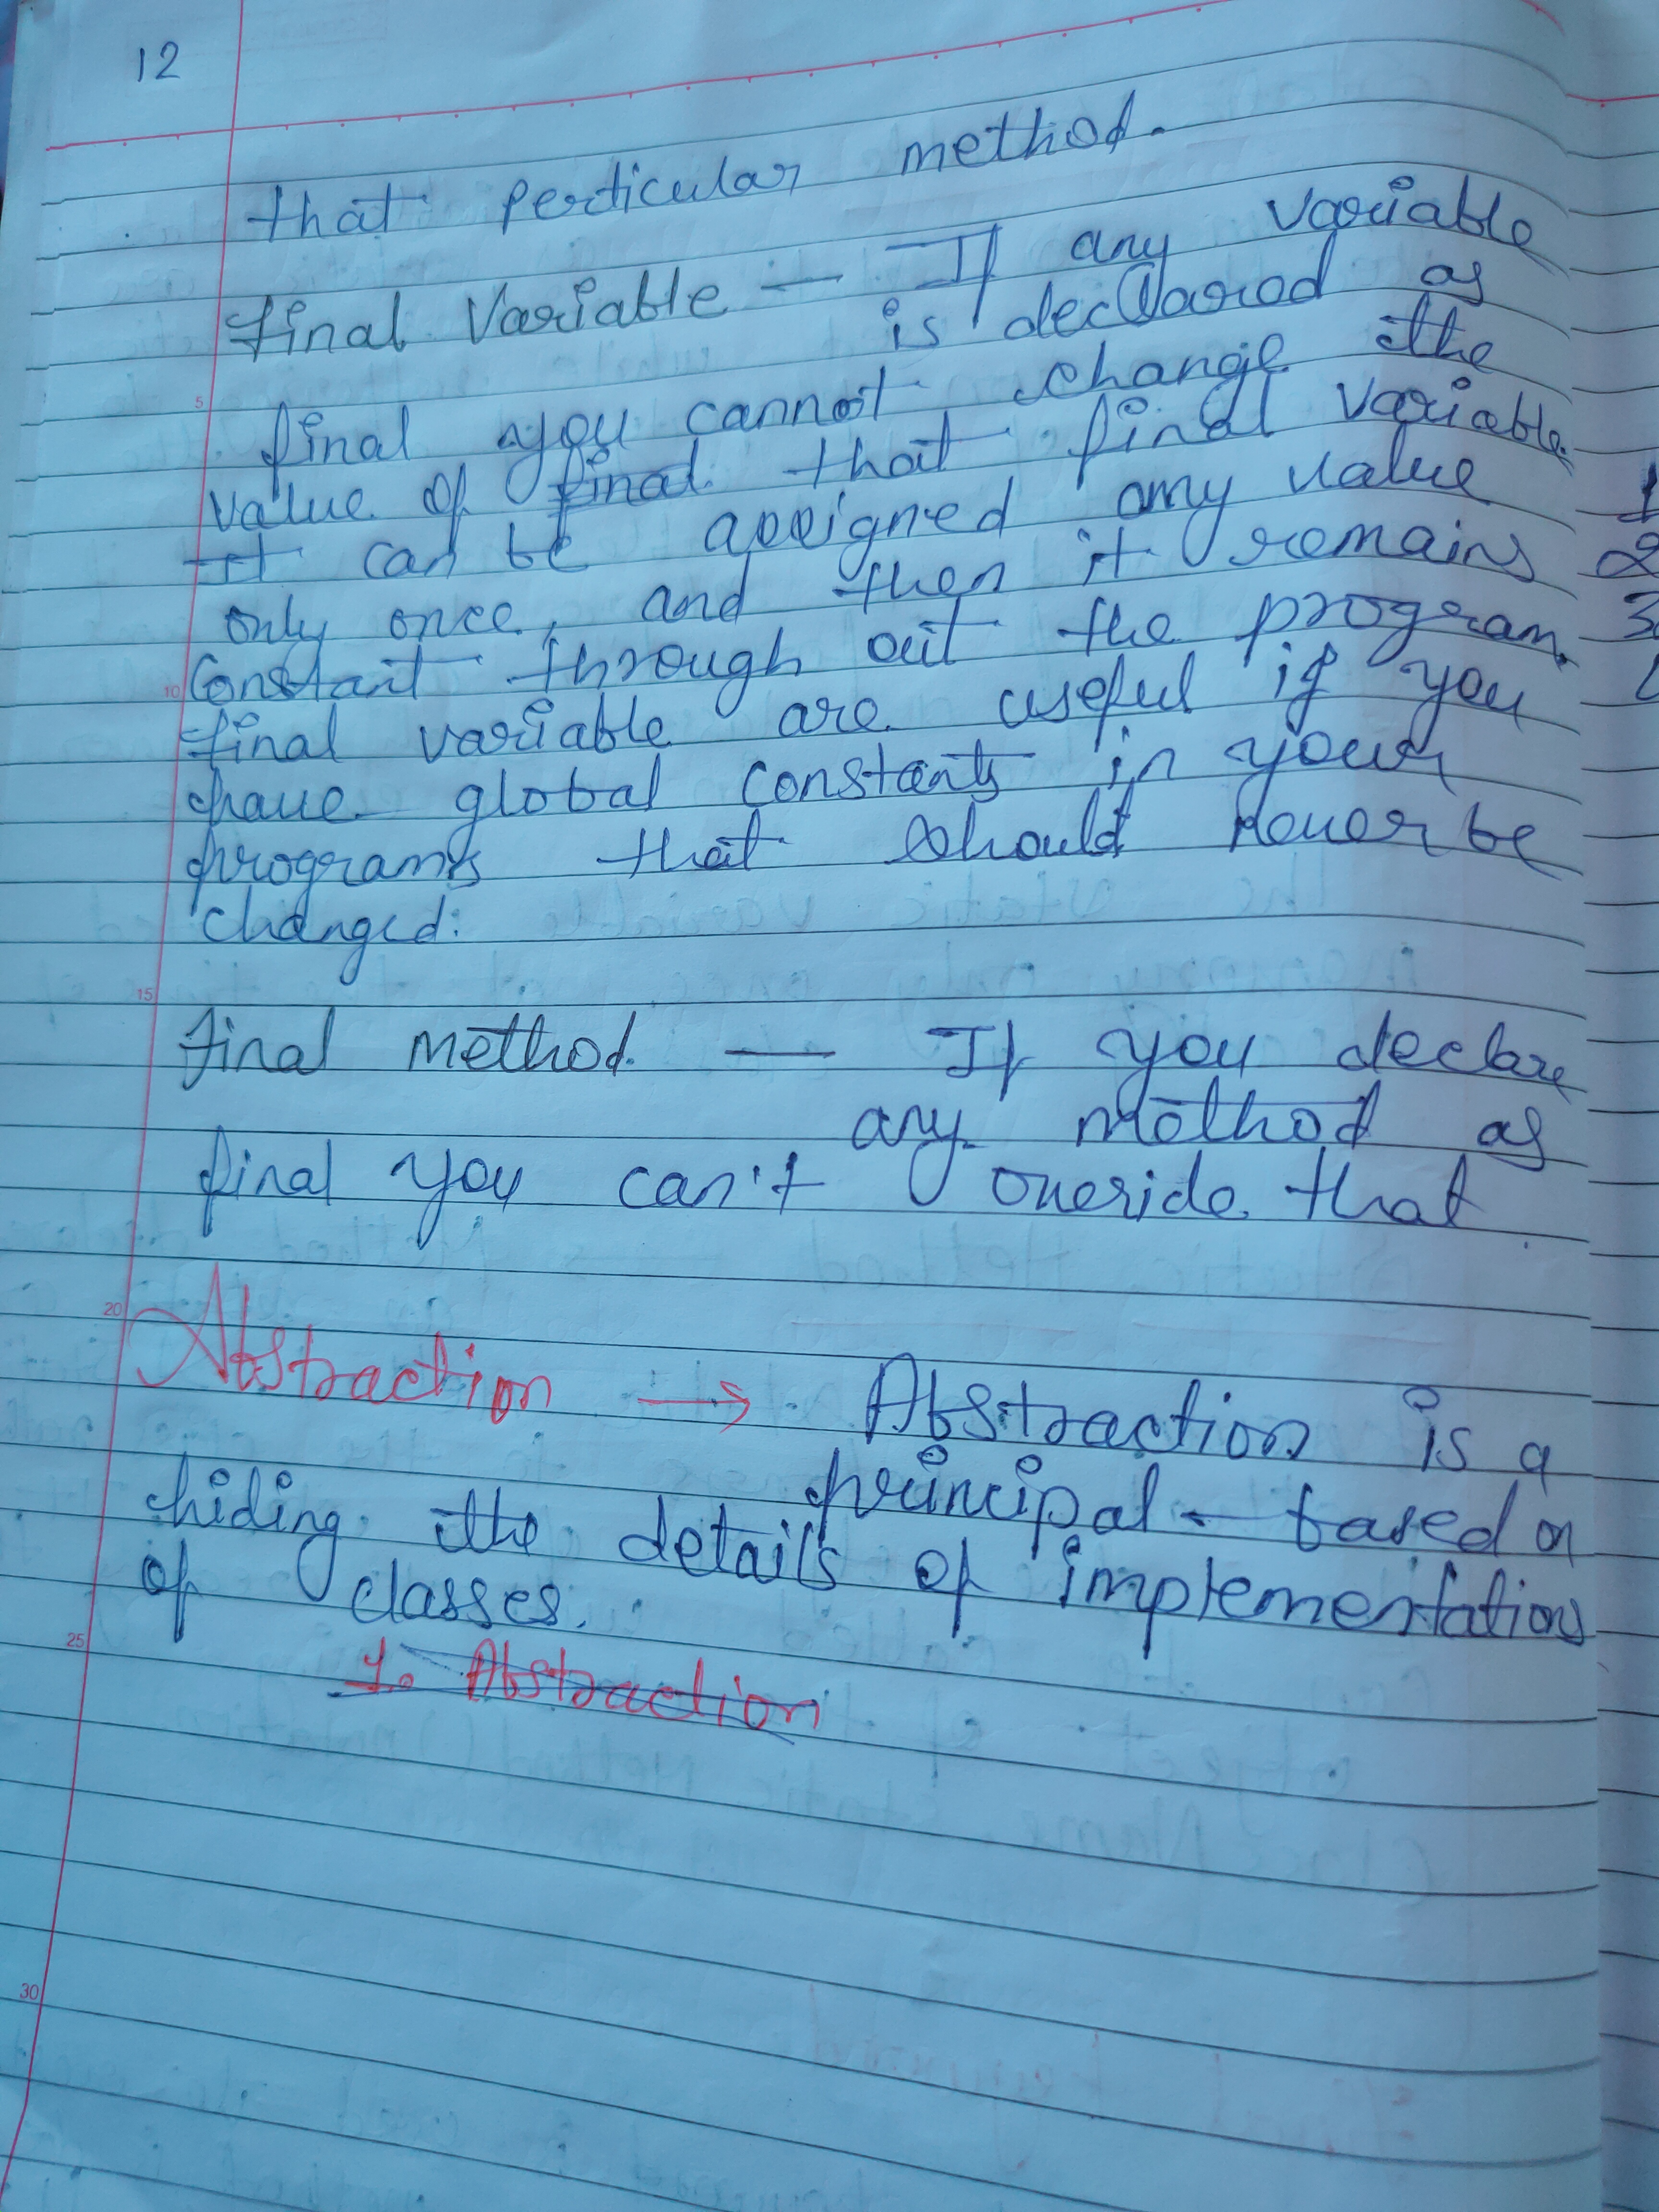 12
that perticular method.
final Variable — If any variable
is declared as
final you cannot change the
value of final that final variable.
It can be assigned any value
only once, and then it remains
Constant through out the program.
final variable are useful if you
have global constants in your
programs that should never be
changed.
final method — If you declare
any method as
final you can't overide that
Abstraction → Abstraction is a
principal - based on
hiding the details of implementation
of classes.
1. Abstraction
5
10
15
20
25
30
1
2
3